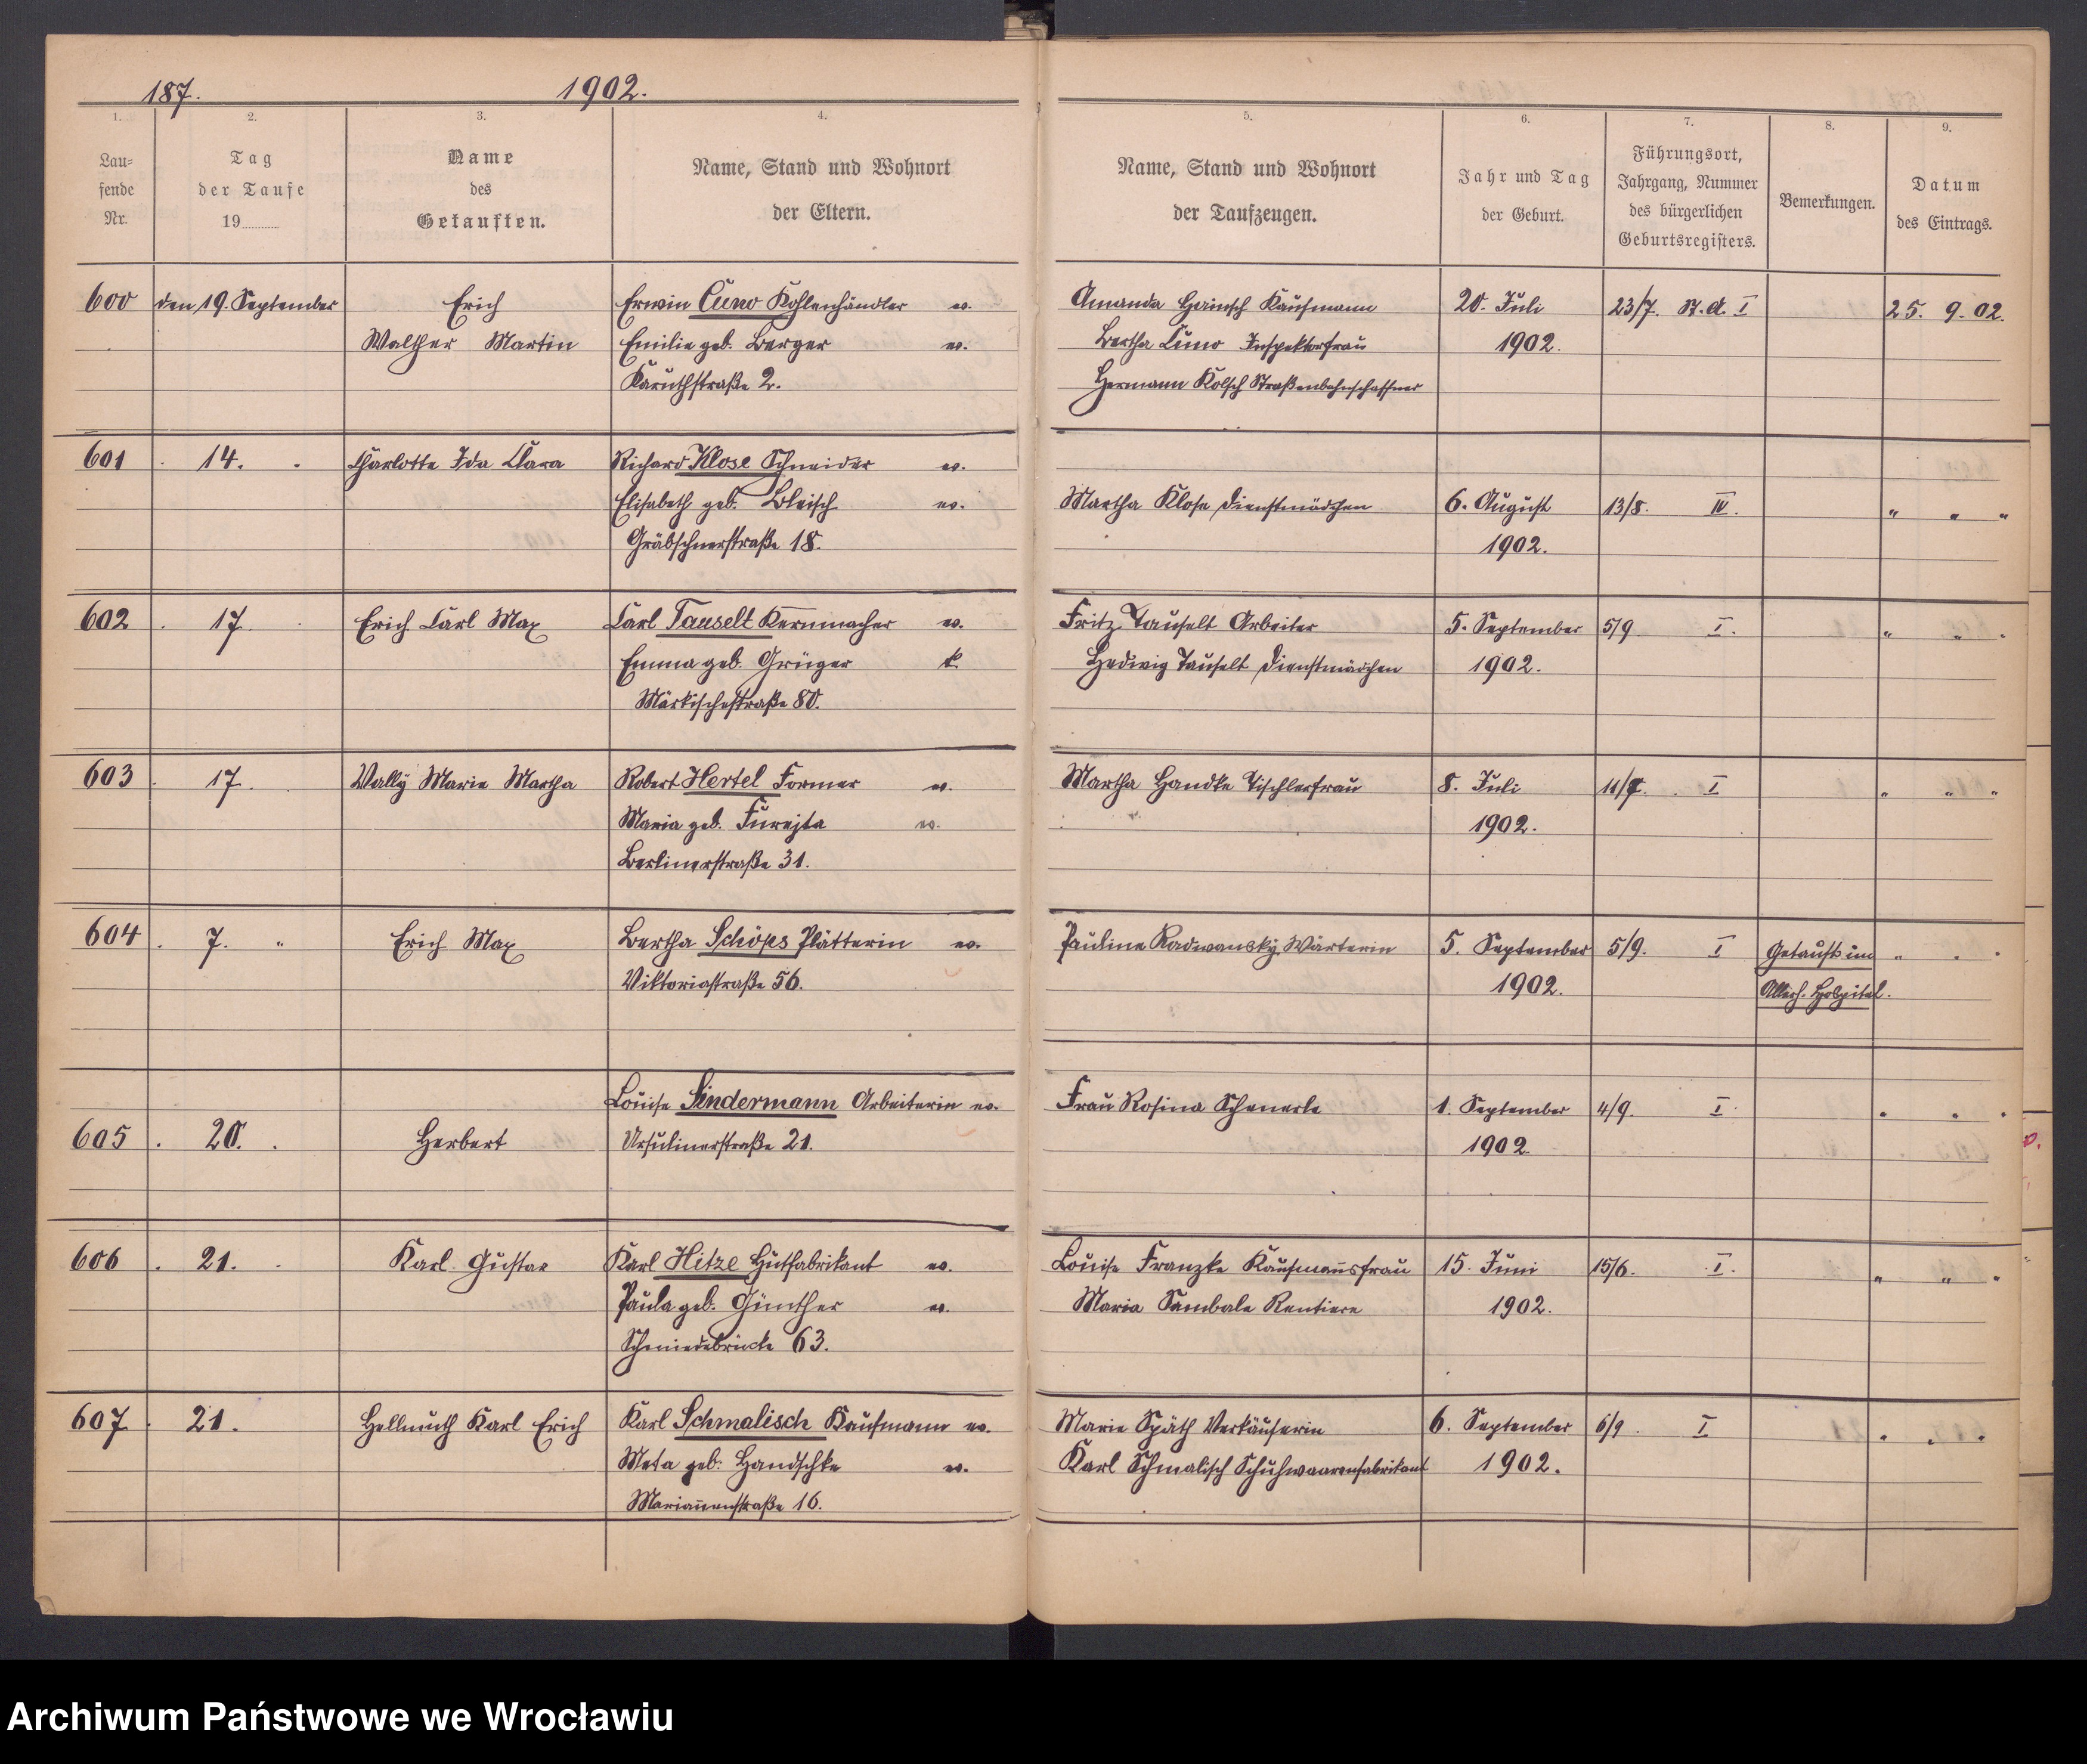 187.
1902.
1.
2.
3.
4.
5.
6.
7.
8.
9.
Lau-
fende
Nr.
Tag
der Taufe
19
Name
des
Getauften.
Name, Stand und Wohnort
der Eltern.
Name, Stand und Wohnort
der Taufzeugen.
Jahr und Tag
der Geburt.
Führungsort,
Jahrgang, Nummer
des bürgerlichen
Geburtsregisters.
Bemerkungen.
Datum
des Eintrags.
600 den 19. September Erich Erwin Cuno Kohlenhändler ev. Amanda Kaufmann 20. Juli 23/7. St. A. I 25. 9. 02.
Walther Martin Emilie geb. Berger ev. Bertha Cuno Inspektorfrau 1902.
Karuthstraße 2. Hermann Kolsch Straßenbahnschaffner
601 14. Charlotte Ida Clara Richard Klose Schneider ev.
Elisabeth geb. Bleisch ev. Martha Klose Dienstmädchen 6. August 13/8. IV. " " "
Gräbschnerstraße 18. 1902.
602 17. Erich Carl Max Carl Tauselt Kernmacher ev. Fritz Tauselt Arbeiter 5. September 5/9 I. " " "
Emma geb. Grüger k. Hedwig Tauselt Dienstmädchen 1902.
Märkischestraße 80.
603 17. Wally Marie Martha Robert Hertel Former ev. Martha Handke Tischlerfrau 8. Juli 11/7. I " " "
Maria geb. ev. 1902.
Berlinerstraße 31.
604 7. " Erich Max Bertha Schöps Plätterin ev. Pauline Radwansky Wärterin 5. September 5/9. I Getauft im " " "
Viktoriastraße 56. 1902. Allerh. Hospital.
Louise Sindermann Arbeiterin ev. Frau Rosina 1. September 4/9. I " " "
605 20. Herbert Ursulinerstraße 21. 1902.
606 21. Karl Gustav Karl Hitze Hutfabrikant ev. Louise Franzke Kaufmannsfrau 15. Juni 15/6. I. " " "
Paula geb. Günther ev. Maria Sambale Rentiere 1902.
Schmiedebrücke 63.
607 21. Hellmuth Karl Erich Karl Schmalisch Kaufmann ev. Marie Späth Verkäuferin 6. September 6/9. I " " "
Meta geb. Handschke ev. Karl Schmalisch Schuhwaarenfabrikant 1902.
Mariannenstraße 16.
Archiwum Państwowe we Wrocławiu